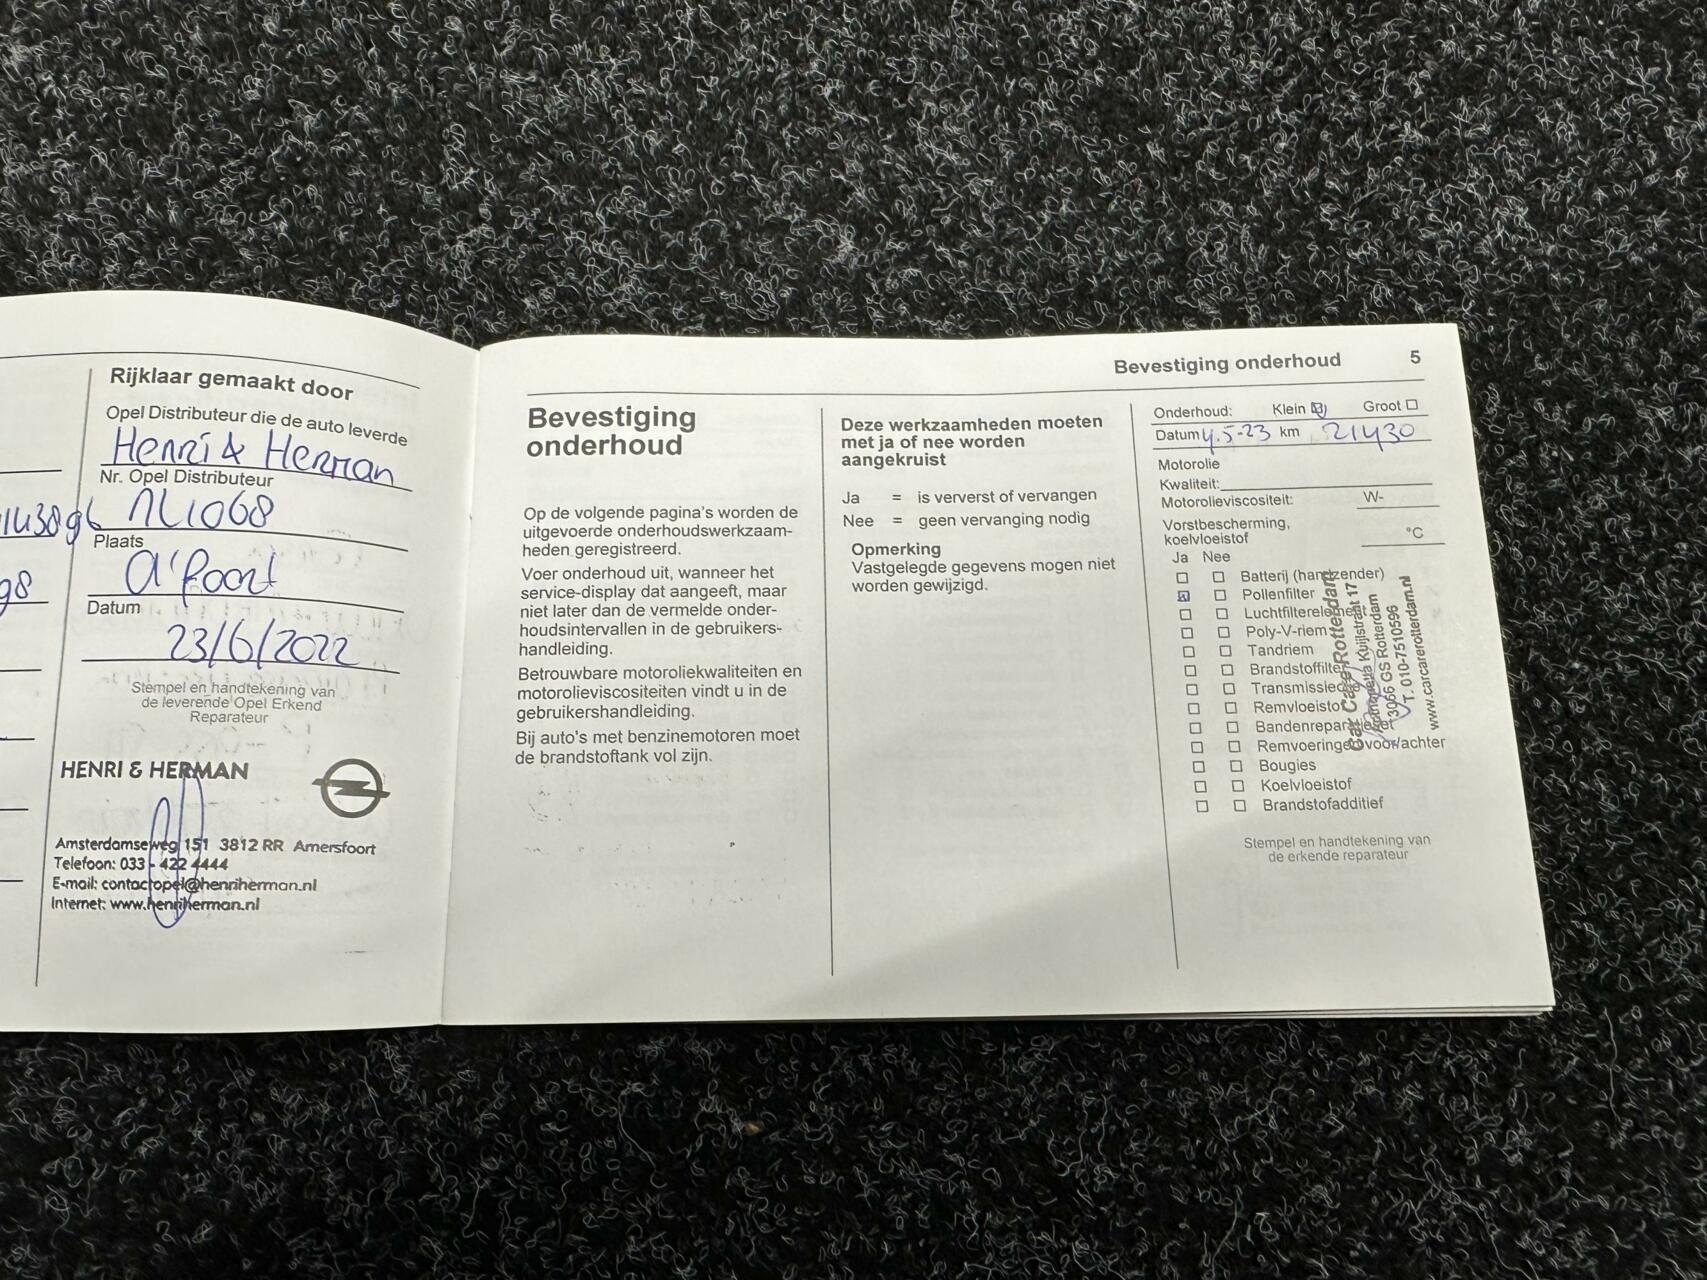 Rijklaar gemaakt door
Opel Distributeur die de auto leverde
Henri & Herman
Nr. Opel Distributeur
NL1068
Plaats
A'foort
Datum
23/6/2022
Stempel en handtekening van
de leverende Opel Erkend
Reparateur
HENRI & HERMAN
Amsterdamseweg 151 3812 RR Amersfoort
Telefoon: 033 - 422 4444
E-mail: contactopel@henriherman.nl
Internet: www.henriherman.nl
Bevestiging onderhoud 5
Bevestiging
onderhoud
Op de volgende pagina's worden de
uitgevoerde onderhoudswerkzaam-
heden geregistreerd.
Voer onderhoud uit, wanneer het
service-display dat aangeeft, maar
niet later dan de vermelde onder-
houdsintervallen in de gebruikers-
handleiding.
Betrouwbare motoroliekwaliteiten en
motorolieviscositeiten vindt u in de
gebruikershandleiding.
Bij auto's met benzinemotoren moet
de brandstoftank vol zijn.
Deze werkzaamheden moeten
met ja of nee worden
aangekruist
Ja = is ververst of vervangen
Nee = geen vervanging nodig
Opmerking
Vastgelegde gegevens mogen niet
worden gewijzigd.
Onderhoud: Klein Groot
Datum 4.5-23 km 21430
Motorolie
Kwaliteit:
Motorolieviscositeit: W-
Vorstbescherming,
koelvloeistof °C
Ja Nee
Batterij (handzender)
Pollenfilter
Luchtfilterelement
Poly-V-riem
Tandriem
Brandstoffilter
Remvloeistof
Bandenreparatieset
Remvoeringen voor/achter
Bougies
Koelvloeistof
Brandstofadditief
Car Care Rotterdam
Kuijlstraat 17
3066 GS Rotterdam
T. 010-7510596
www.carcarerotterdam.nl
Stempel en handtekening van
de erkende reparateur